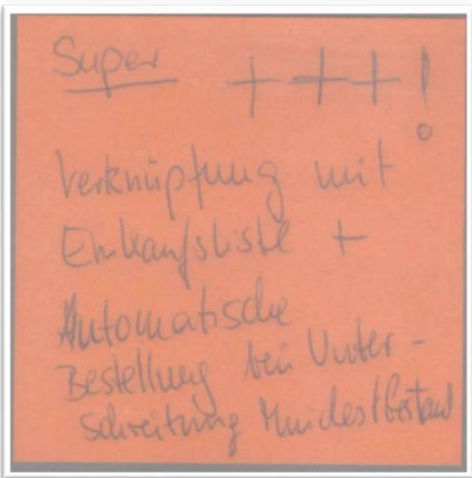 Super +++!
Verknüpfung mit
Einkaufsliste +
Automatische
Bestellung bei Unter-
schreitung Mindestbestand